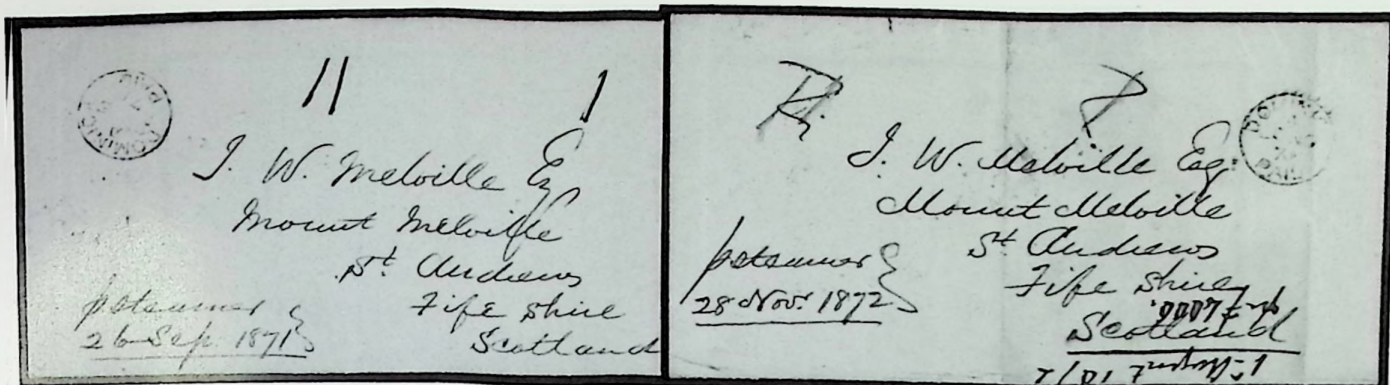 11 1
J. W. Melville Esq
Mount Melville
St. Andrews
Fife Shire
Scotland
p steamer
26 Sep. 1871
PAID
J. W. Melville Esq.
Mount Melville
St. Andrews
Fife Shire
Scotland
p steamer
28 Nov. 1872
DOMINICA
PAID